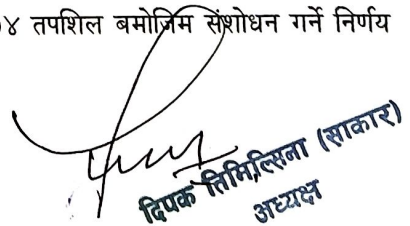 ४ तपशिल बमोजिम संशोधन गर्ने निर्णय
दिपक तिमिल्सिना (साकार)
अध्यक्ष